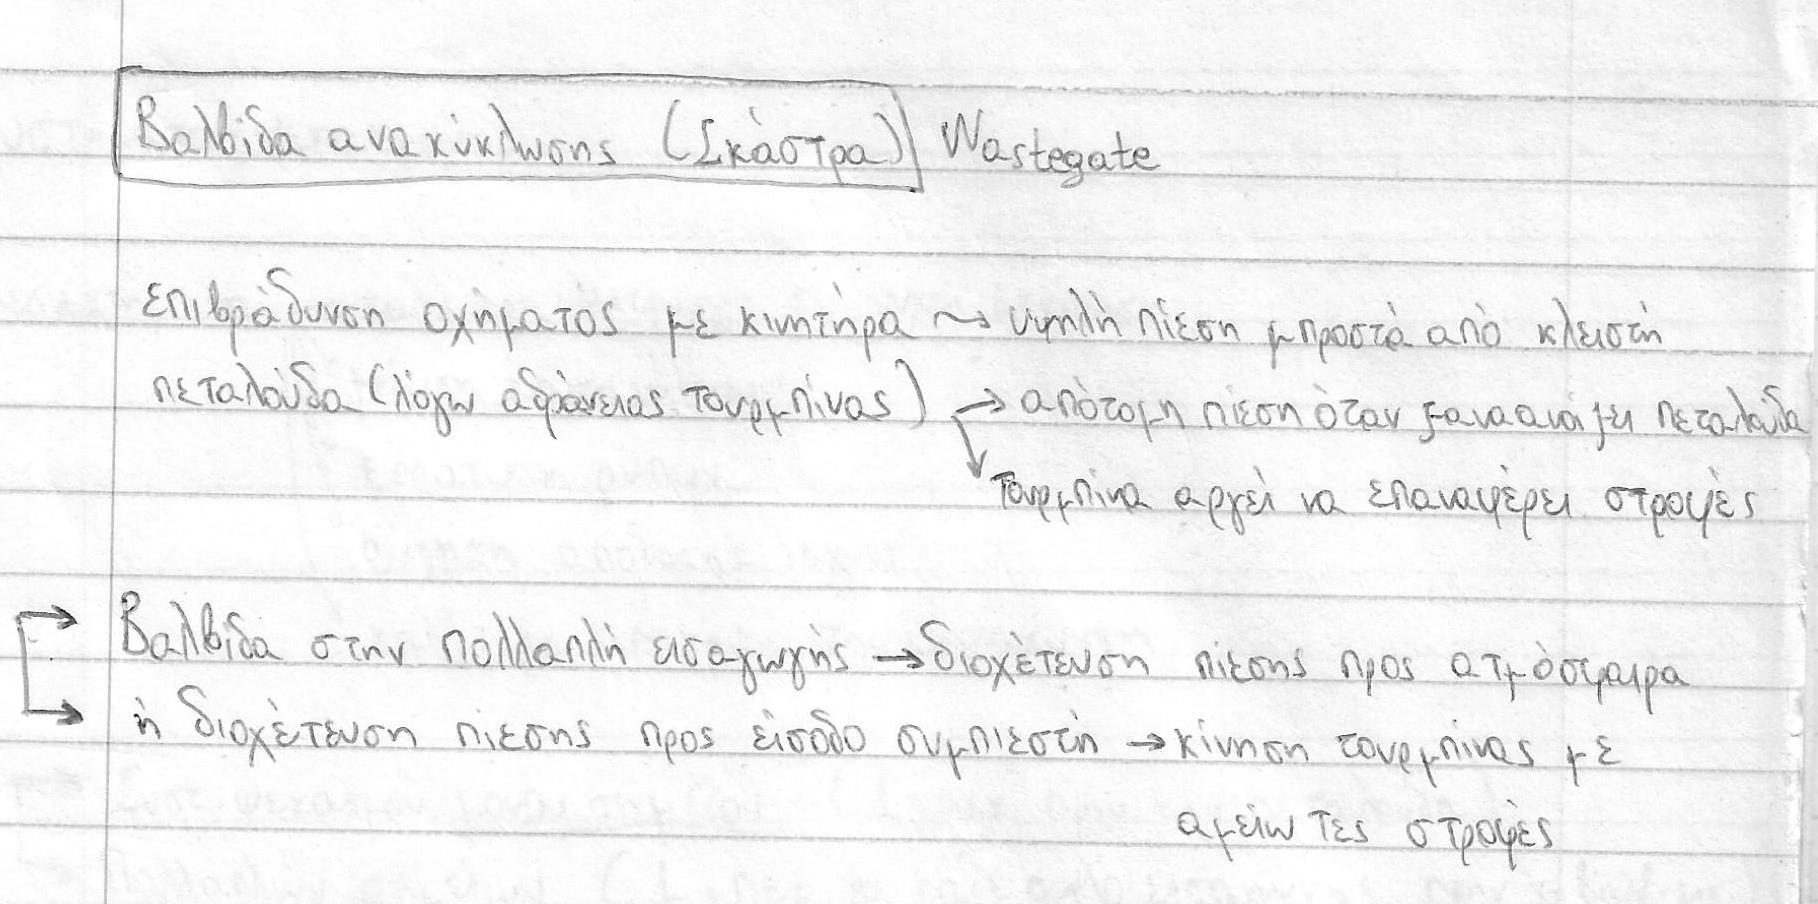 Βαλβίδα ανακύκλωσης (Σκάστρα) Wastegate
επιβράδυνση οχήματος με κινητήρα → υψηλή πίεση μπροστά από κλειστή
πεταλούδα (λόγω αδράνειας τουρμπίνας) → απότομη πίεση όταν ξαναανοίξει πεταλούδα
↓ τουρμπίνα αργεί να επαναφέρει στροφές
→ Βαλβίδα στην πολλαπλή εισαγωγής → διοχέτευση πίεσης προς ατμόσφαιρα
→ ή διοχέτευση πίεσης προς είσοδο συμπιεστή → κίνηση τουρμπίνας με
αμείωτες στροφές